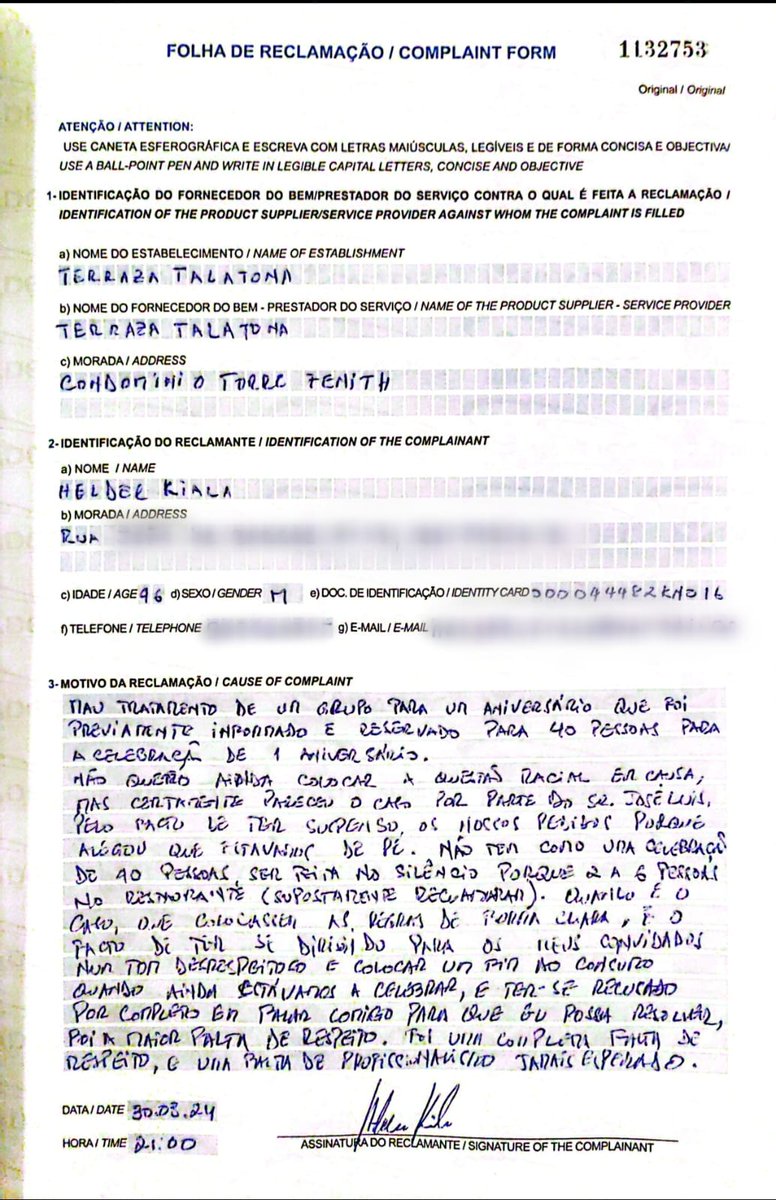 FOLHA DE RECLAMAÇÃO / COMPLAINT FORM 1132753
Original / Original
ATENÇÃO / ATTENTION:
USE CANETA ESFEROGRÁFICA E ESCREVA COM LETRAS MAIÚSCULAS, LEGÍVEIS E DE FORMA CONCISA E OBJECTIVA/
USE A BALL-POINT PEN AND WRITE IN LEGIBLE CAPITAL LETTERS, CONCISE AND OBJECTIVE
1- IDENTIFICAÇÃO DO FORNECEDOR DO BEM/PRESTADOR DO SERVIÇO CONTRA O QUAL É FEITA A RECLAMAÇÃO /
IDENTIFICATION OF THE PRODUCT SUPPLIER/SERVICE PROVIDER AGAINST WHOM THE COMPLAINT IS FILLED
a) NOME DO ESTABELECIMENTO / NAME OF ESTABLISHMENT
TERRAZA TALATONA
b) NOME DO FORNECEDOR DO BEM - PRESTADOR DO SERVIÇO / NAME OF THE PRODUCT SUPPLIER - SERVICE PROVIDER
TERRAZA TALATONA
c) MORADA / ADDRESS
CONDOMINIO TORRE ZENITH
2- IDENTIFICAÇÃO DO RECLAMANTE / IDENTIFICATION OF THE COMPLAINANT
a) NOME / NAME
HELDER KIALA
b) MORADA / ADDRESS
RUA
c) IDADE / AGE 46 d) SEXO / GENDER M e) DOC. DE IDENTIFICAÇÃO / IDENTITY CARD
f) TELEFONE / TELEPHONE g) E-MAIL / E-MAIL
3- MOTIVO DA RECLAMAÇÃO / CAUSE OF COMPLAINT
MAU TRATAMENTO DE UM GRUPO PARA UM ANIVERSÁRIO QUE FOI
PREVIAMENTE INFORMADO E RESERVADO PARA 40 PESSOAS PARA
A CELEBRAÇÃO DE 1 ANIVERSÁRIO.
NÃO QUERO AINDA COLOCAR A QUESTÃO RACIAL EM CAUSA,
MAS CERTAMENTE PARECEU O CASO POR PARTE DO SR. JOSÉ LUIS,
PELO FACTO DE TER SUSPENSO, OS NOSSOS PEDIDOS PORQUE
ALEGOU QUE ESTAVAMOS DE PÉ. NÃO TEM COMO UMA CELEBRAÇÃO
DE 40 PESSOAS, SER FEITA NO SILÊNCIO PORQUE 2 A 6 PESSOAS
NO RESTAURANTE (SUPOSTAMENTE RECLAMARAM). QUANDO É O
CASO, QUE COLOCASSEM AS REGRAS DE FORMA CLARA, E O
FACTO DE TER SE DIRIGIDO PARA OS MEUS CONVIDADOS
NUM TOM DESRESPEITOSO E COLOCAR UM FIM AO CONSUMO
QUANDO AINDA ESTÁVAMOS A CELEBRAR, E TER-SE RECUSADO
POR COMPLETO EM FALAR COMIGO PARA QUE EU POSSA RESOLVER,
FOI A MAIOR FALTA DE RESPEITO. FOI UMA COMPLETA FALTA DE
RESPEITO, E UMA FALTA DE PROFISSIONALISMO JAMAIS ESPERADO.
DATA / DATE 30.03.24
HORA / TIME 21:00
ASSINATURA DO RECLAMANTE / SIGNATURE OF THE COMPLAINANT